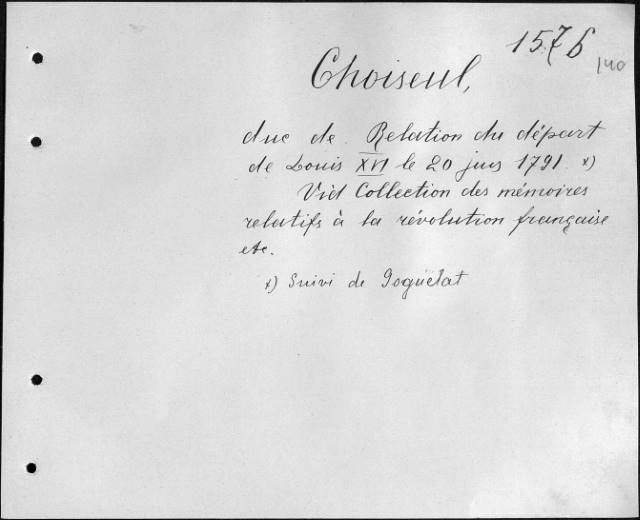 1576
140
Choiseul,
duc de. Relation du départ
de Louis XVI le 20 juin 1791. x)
Vid Collection des mémoires
relatifs à la révolution française
etc.
x) Suivi de Goguelat